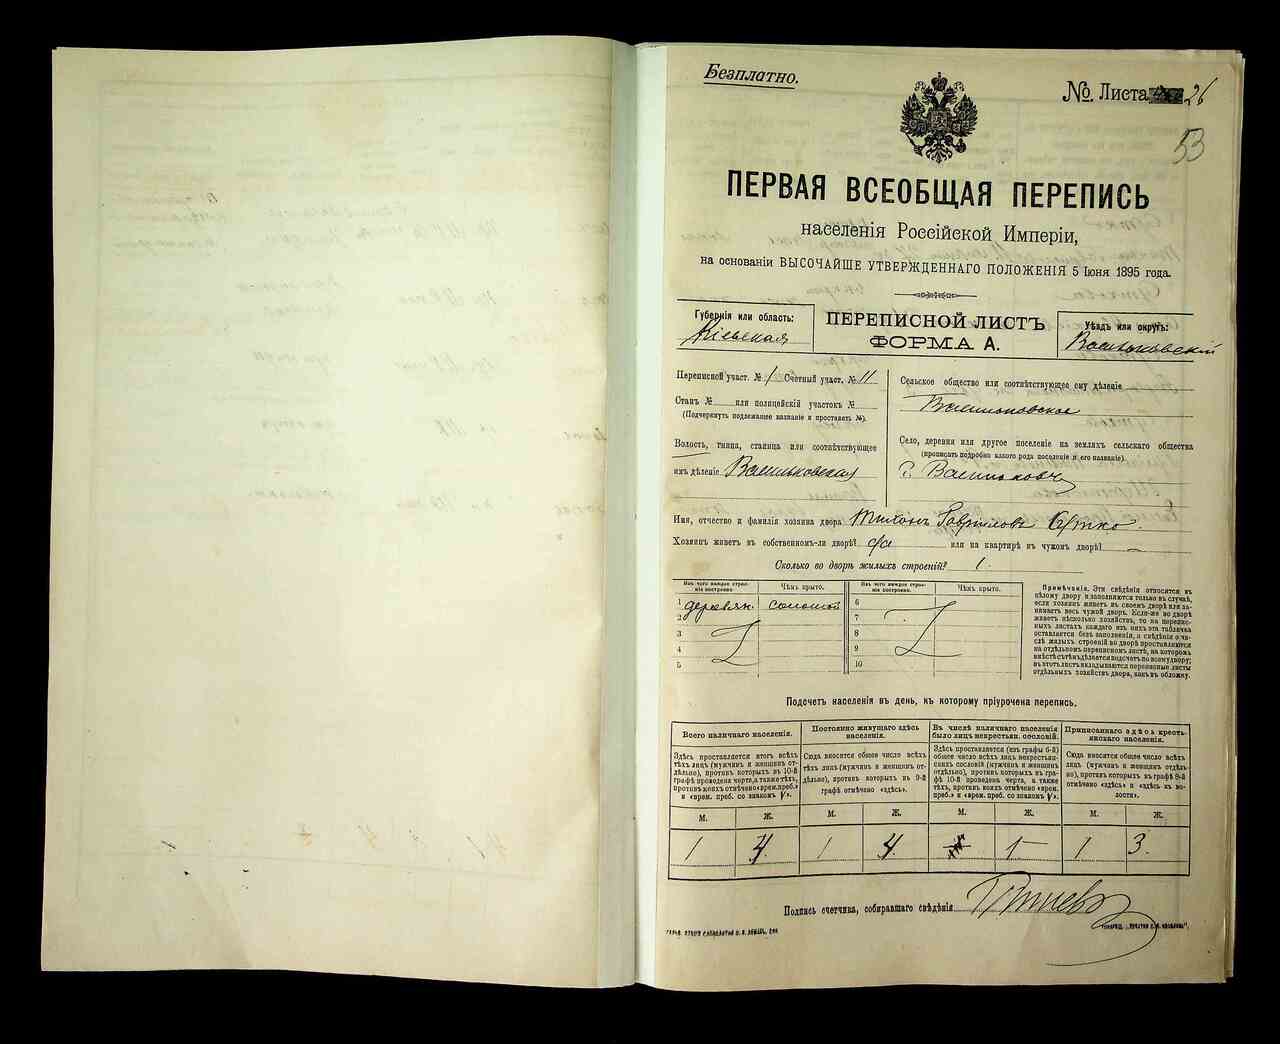 Безплатно.
№. Листа 26
53
ПЕРВАЯ ВСЕОБЩАЯ ПЕРЕПИСЬ
населенія Россійской Имперіи,
на основаніи ВЫСОЧАЙШЕ УТВЕРЖДЕННАГО ПОЛОЖЕНІЯ 5 Іюня 1895 года.
Губернія или область:
Кіевская
ПЕРЕПИСНОЙ ЛИСТЪ
ФОРМА А.
Уѣздъ или округъ:
Васильковскій
Переписной участ. № 1 Счетный участ. № 11
Станъ № или полицейскій участокъ №
(Подчеркнуть подлежащее названіе и проставить №).
Волость, гмина, станица или соотвѣтствующее
имъ дѣленіе Васильковская
Сельское общество или соотвѣтствующее ему дѣленіе
Васильковское
Село, деревня или другое поселеніе на земляхъ сельскаго общества
(прописать подробно какого рода поселеніе и его названіе).
г. Васильковъ
Имя, отчество и фамилія хозяина двора Тихонъ Гавриловъ Сутко.
Хозяинъ живетъ въ собственномъ-ли дворѣ? с/с или на квартирѣ въ чужомъ дворѣ? —
Сколько во дворѣ жилыхъ строеній? 1.
Изъ чего каждое строеніе построено. Чѣмъ крыто. Изъ чего каждое строеніе построено. Чѣмъ крыто.
1 деревян. соломой 6
2 7
3 8
4 9
5 10
Примѣчаніе. Эти свѣдѣнія относятся къ
цѣлому двору и заполняются только въ случаѣ,
если хозяинъ живетъ въ своемъ дворѣ или за-
нимаетъ весь чужой дворъ. Если-же во дворѣ
живетъ нѣсколько хозяйствъ, то на перепис-
ныхъ листахъ каждаго изъ нихъ эта табличка
оставляется безъ заполненія, а свѣдѣнія о чи-
слѣ жилыхъ строеній во дворѣ проставляются
на отдѣльномъ переписномъ листѣ, на которомъ
вмѣстѣ съ тѣмъ дѣлается подсчетъ по всему двору;
въ этотъ листъ вкладываются переписные листы
отдѣльныхъ хозяйствъ двора, какъ въ обложку.
Подсчетъ населенія въ день, къ которому пріурочена перепись.
Всего наличнаго населенія.
Здѣсь проставляется итогъ всѣхъ
тѣхъ лицъ (мужчинъ и женщинъ от-
дѣльно), противъ которыхъ въ 10-й
графѣ проведена черта, а также тѣхъ,
противъ коихъ отмѣчено «врем. преб.»
и «врем. преб. со знакомъ V».
Постоянно живущаго здѣсь
населенія.
Сюда вносится общее число всѣхъ
тѣхъ лицъ (мужчинъ и женщинъ от-
дѣльно), противъ которыхъ въ 9-й
графѣ отмѣчено «здѣсь».
Въ числѣ наличнаго населенія
было лицъ некрестьян. сословій.
Здѣсь проставляется (изъ графы 6-й)
общее число всѣхъ лицъ некрестьян-
скихъ сословій (мужчинъ и женщинъ
отдѣльно), противъ которыхъ въ гра-
фѣ 10-й проведена черта, а также
тѣхъ, противъ коихъ отмѣчено «врем.
преб.» и «врем. преб. со знакомъ V».
Приписаннаго здѣсь кресть-
янскаго населенія.
Сюда вносится общее число всѣхъ
лицъ (мужчинъ и женщинъ отдѣль-
но), противъ которыхъ въ графѣ 8-й
отмѣчено «здѣсь» и «здѣсь въ во-
лости».
М. Ж. М. Ж. М. Ж. М. Ж.
1 4. 1 4. 1 1 3.
Подпись счетчика, собиравшаго свѣдѣнія